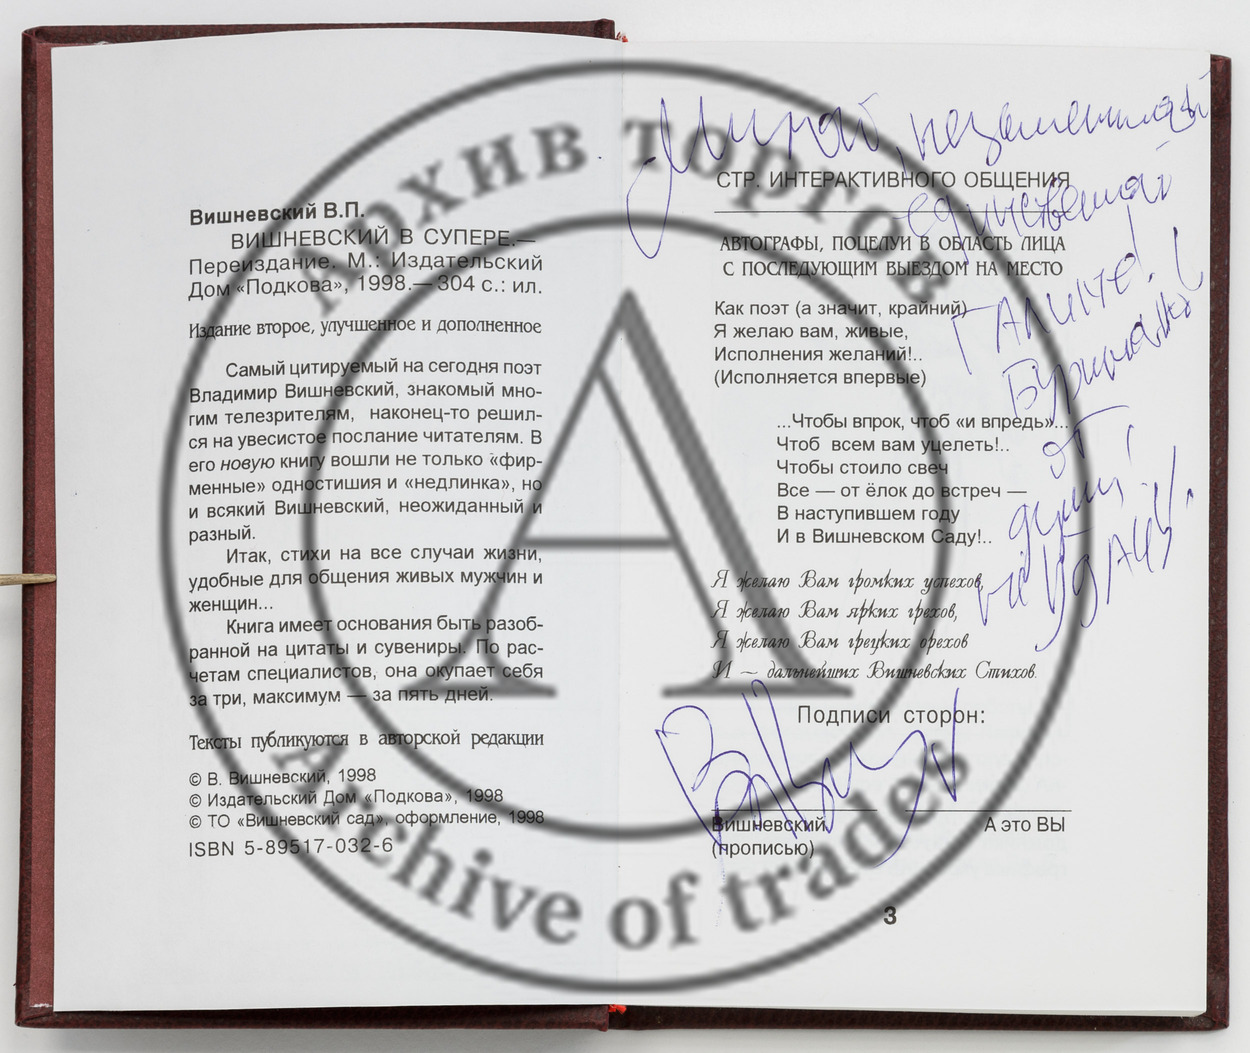 Вишневский В.П.
ВИШНЕВСКИЙ В СУПЕРЕ.—
Переиздание. М.: Издательский
Дом «Подкова», 1998.— 304 с.: ил.
Издание второе, улучшенное и дополненное
Самый цитируемый на сегодня поэт
Владимир Вишневский, знакомый мно-
гим телезрителям, наконец-то решил-
ся на увесистое послание читателям. В
его новую книгу вошли не только «фир-
менные» одностишия и «недлинка», но
и всякий Вишневский, неожиданный и
разный.
Итак, стихи на все случаи жизни,
удобные для общения живых мужчин и
женщин...
Книга имеет основания быть разоб-
ранной на цитаты и сувениры. По рас-
четам специалистов, она окупает себя
за три, максимум — за пять дней.
Тексты публикуются в авторской редакции
© В. Вишневский, 1998
© Издательский Дом «Подкова», 1998
© ТО «Вишневский сад», оформление, 1998
ISBN 5-89517-032-6
Милой, незаменимой
СТР. ИНТЕРАКТИВНОГО ОБЩЕНИЯ
единственной
АВТОГРАФЫ, ПОЦЕЛУИ В ОБЛАСТЬ ЛИЦА
С ПОСЛЕДУЮЩИМ ВЫЕЗДОМ НА МЕСТО
Галине!
Как поэт (а значит, крайний)
Я желаю вам, живые,
Исполнения желаний!..
(Исполняется впервые)
...Чтобы впрок, чтоб «и впредь»...
Чтоб всем вам уцелеть!..
Чтобы стоило свеч
Все — от ёлок до встреч —
В наступившем году
И в Вишневском Саду!..
от
души
на удачу!
Я желаю Вам громких успехов,
Я желаю Вам ярких грехов,
Я желаю Вам грецких орехов
И — дальнейших Вишневских Стихов.
Подписи сторон:
Вишневский
(прописью)
А это ВЫ
3
Архив торгов
A
Archive of trades